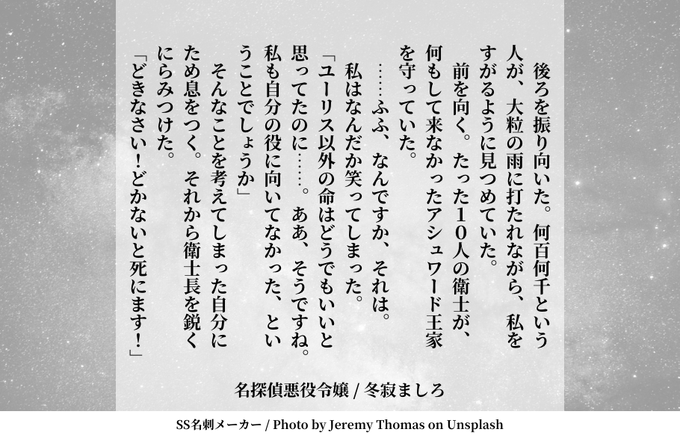 後ろを振り向いた。何百何千という
人が、大粒の雨に打たれながら、私を
すがるように見つめていた。
　前を向く。たった１０人の衛士が、
何もして来なかったアシュワード王家
を守っていた。
　……ふふ、なんですか、それは。
　私はなんだか笑ってしまった。
「ユーリス以外の命はどうでもいいと
思ってたのに……。ああ、そうですね。
私も自分の役に向いてなかった、とい
うことでしょうか」
　そんなことを考えてしまった自分に
ため息をつく。それから衛士長を鋭く
にらみつけた。
「どきなさい！どかないと死にます！」
名探偵悪役令嬢 / 冬寂ましろ
SS名刺メーカー / Photo by Jeremy Thomas on Unsplash